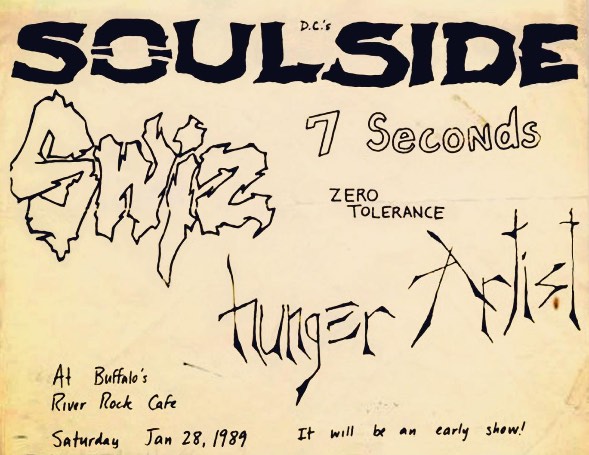 D.C.'s
SOULSIDE
Swiz
7 Seconds
ZERO
TOLERANCE
hunger Artist
At Buffalo's
River Rock Cafe
Saturday Jan 28, 1989
It will be an early show!